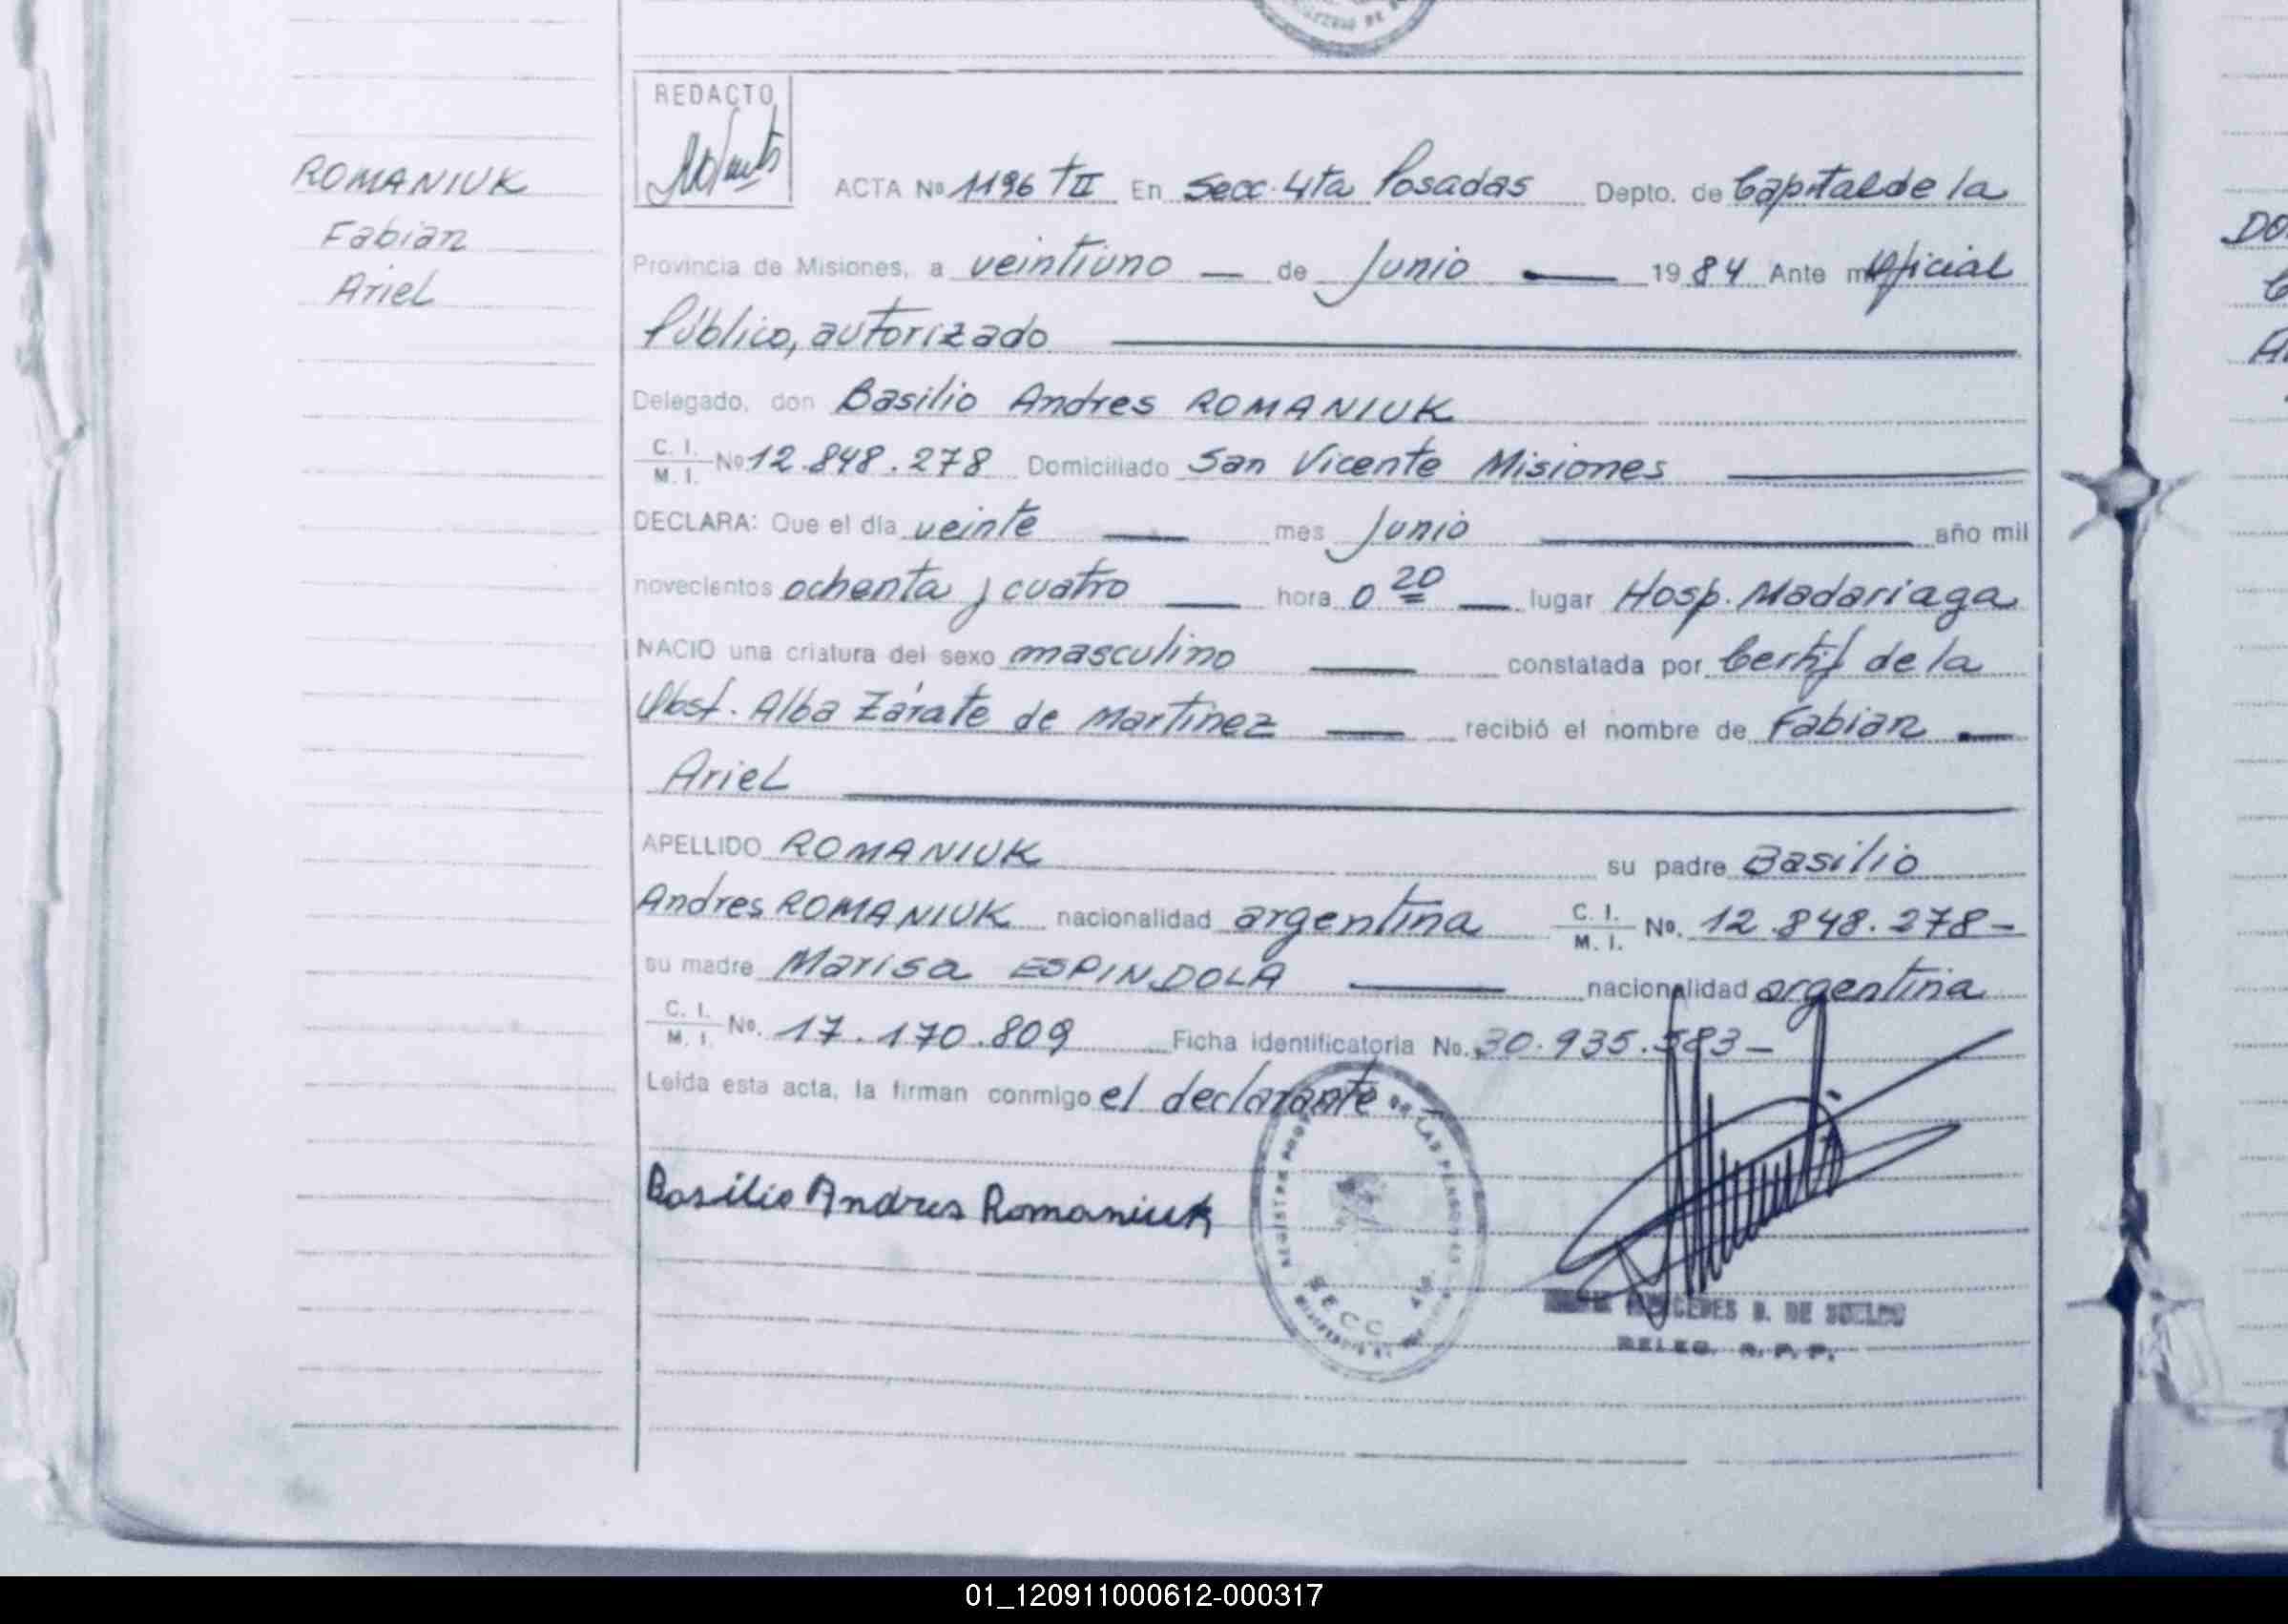 REDACTO
ROMANIUK
Fabian
Ariel
ACTA Nº 1196 TII En Secc. 4ta Posadas Depto. de Capital de la
Provincia de Misiones, a veintiuno — de Junio — 1984 Ante mí Oficial
Público, autorizado
Delegado, don Basilio Andres ROMANIUK
C. I.
M. I. Nº 12.848.278 Domiciliado San Vicente Misiones
DECLARA: Que el día veinte — mes Junio — año mil
novecientos ochenta y cuatro — hora 0 20 — lugar Hosp. Madariaga
NACIO una criatura del sexo masculino — constatada por Certif de la
Obst. Alba Zárate de Martinez — recibió el nombre de Fabian —
Ariel
APELLIDO ROMANIUK su padre Basilio
Andres ROMANIUK nacionalidad argentina C. I. M. I. Nº. 12.848.278-
su madre Marisa ESPINDOLA — nacionalidad argentina
C. I.
M. I. Nº. 17.170.809 Ficha identificatoria No. 30.935.583-
Leída esta acta, la firman conmigo el declarante
Basilio Andres Romaniuk
DE LAS PERSONAS
SECC 4ta.
MERCEDES D. DE
DELEG. R. P. P.
DO
01_120911000612-000317